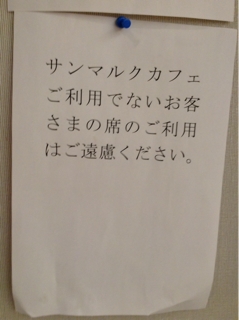 サンマルクカフェ
ご利用でないお客
さまの席のご利用
はご遠慮ください。